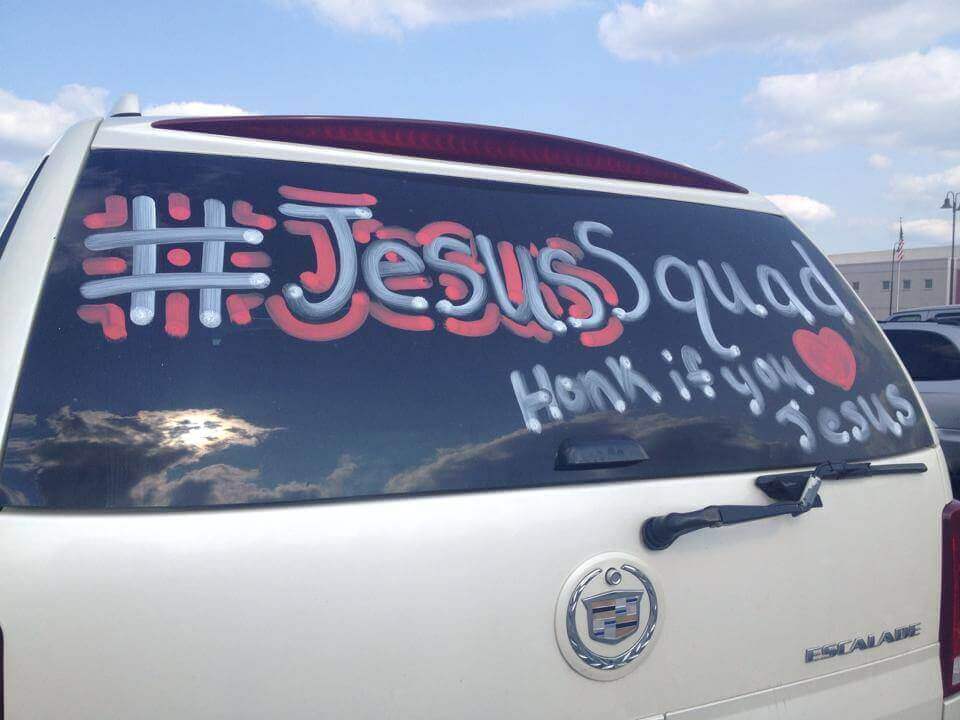 #JesusSquad
Honk if you ❤
Jesus
ESCALADE